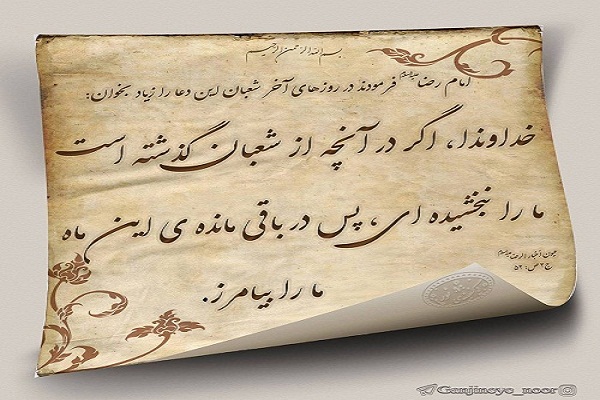 بسم الله الرحمن الرحیم
امام رضا علیه‌السلام فرمودند در روزهای آخر شعبان این دعا را زیاد بخوان:
خداوندا، اگر در آنچه از شعبان گذشته است
ما را نبخشیده ای، پس در باقی مانده ی این ماه
ما را بیامرز.
عیون أخبار الرضا علیه‌السلام
ج۲ ص: ۵۲
Ganjineye_noor